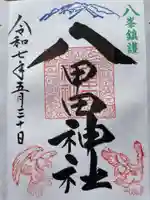 八峯鎮護
八甲田神社
令和七年五月三十日